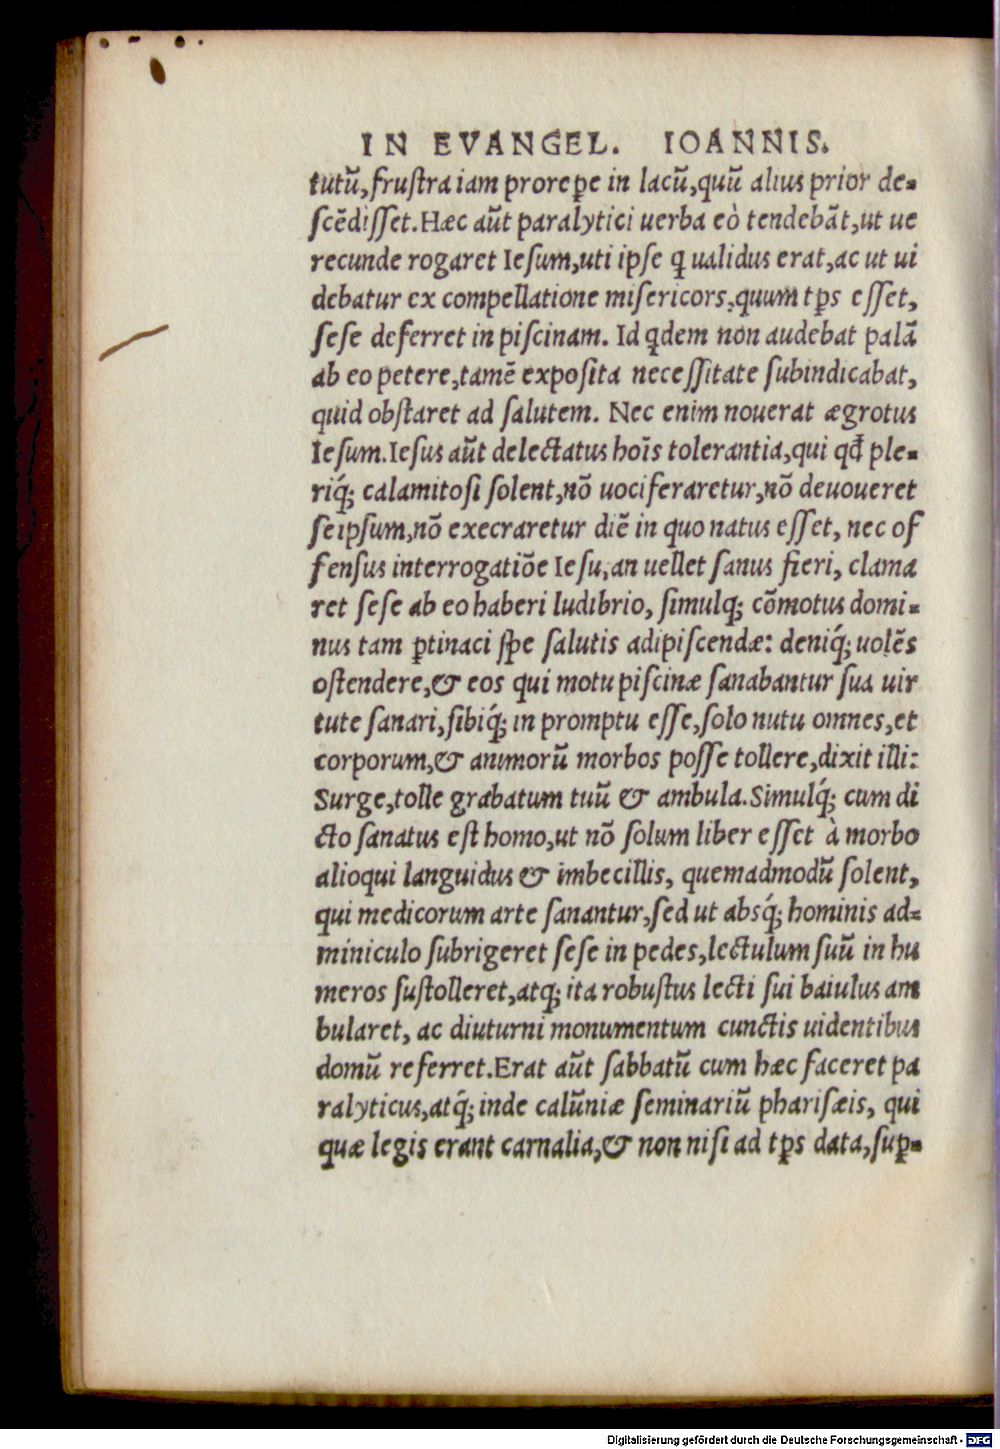 IN EVANGEL. IOANNIS.
tutū, frustra iam prorepe in lacū, quū alius prior de-
scēdisset. Hæc aūt paralytici uerba eò tendebāt, ut ue
recunde rogaret Iesum, uti ipse q ualidus erat, ac ut ui
debatur ex compellatione misericors, quum tp̄s esset,
sese deferret in piscinam. Id qdem non audebat palā
ab eo petere, tamē exposita necessitate subindicabat,
quid obstaret ad salutem. Nec enim nouerat ægrotus
Iesum. Iesus aūt delectatus hoīs tolerantia, qui qđ ple-
riq́; calamitosi solent, nō uociferaretur, nō deuoueret
seipsum, nō execraretur diē in quo natus esset, nec of
fensus interrogatiōe Iesu, an uellet sanus fieri, clama
ret sese ab eo haberi ludibrio, simulq; cōmotus domi-
nus tam ꝑtinaci spe salutis adipiscendæ: deniq́; uolēs
ostendere, & eos qui motu piscinæ sanabantur sua uir
tute sanari, sibiq́; in promptu esse, solo nutu omnes, et
corporum, & animorū morbos posse tollere, dixit illi:
Surge, tolle grabatum tuū & ambula. Simulq́; cum di
cto sanatus est homo, ut nō solum liber esset à morbo
alioqui languidus & imbecillis, quemadmodū solent,
qui medicorum arte sanantur, sed ut absq́; hominis ad-
miniculo subrigeret sese in pedes, lectulum suū in hu
meros sustolleret, atq; ita robustus lecti sui baiulus am
bularet, ac diuturni monumentum cunctis uidentibus
domū referret. Erat aūt sabbatū cum hæc faceret pa
ralyticus, atq́; inde calūniæ seminariū pharisæis, qui
quæ legis erant carnalia, & non nisi ad tp̄s data, suꝑ-
Digitalisierung gefördert durch die Deutsche Forschungsgemeinschaft - DFG